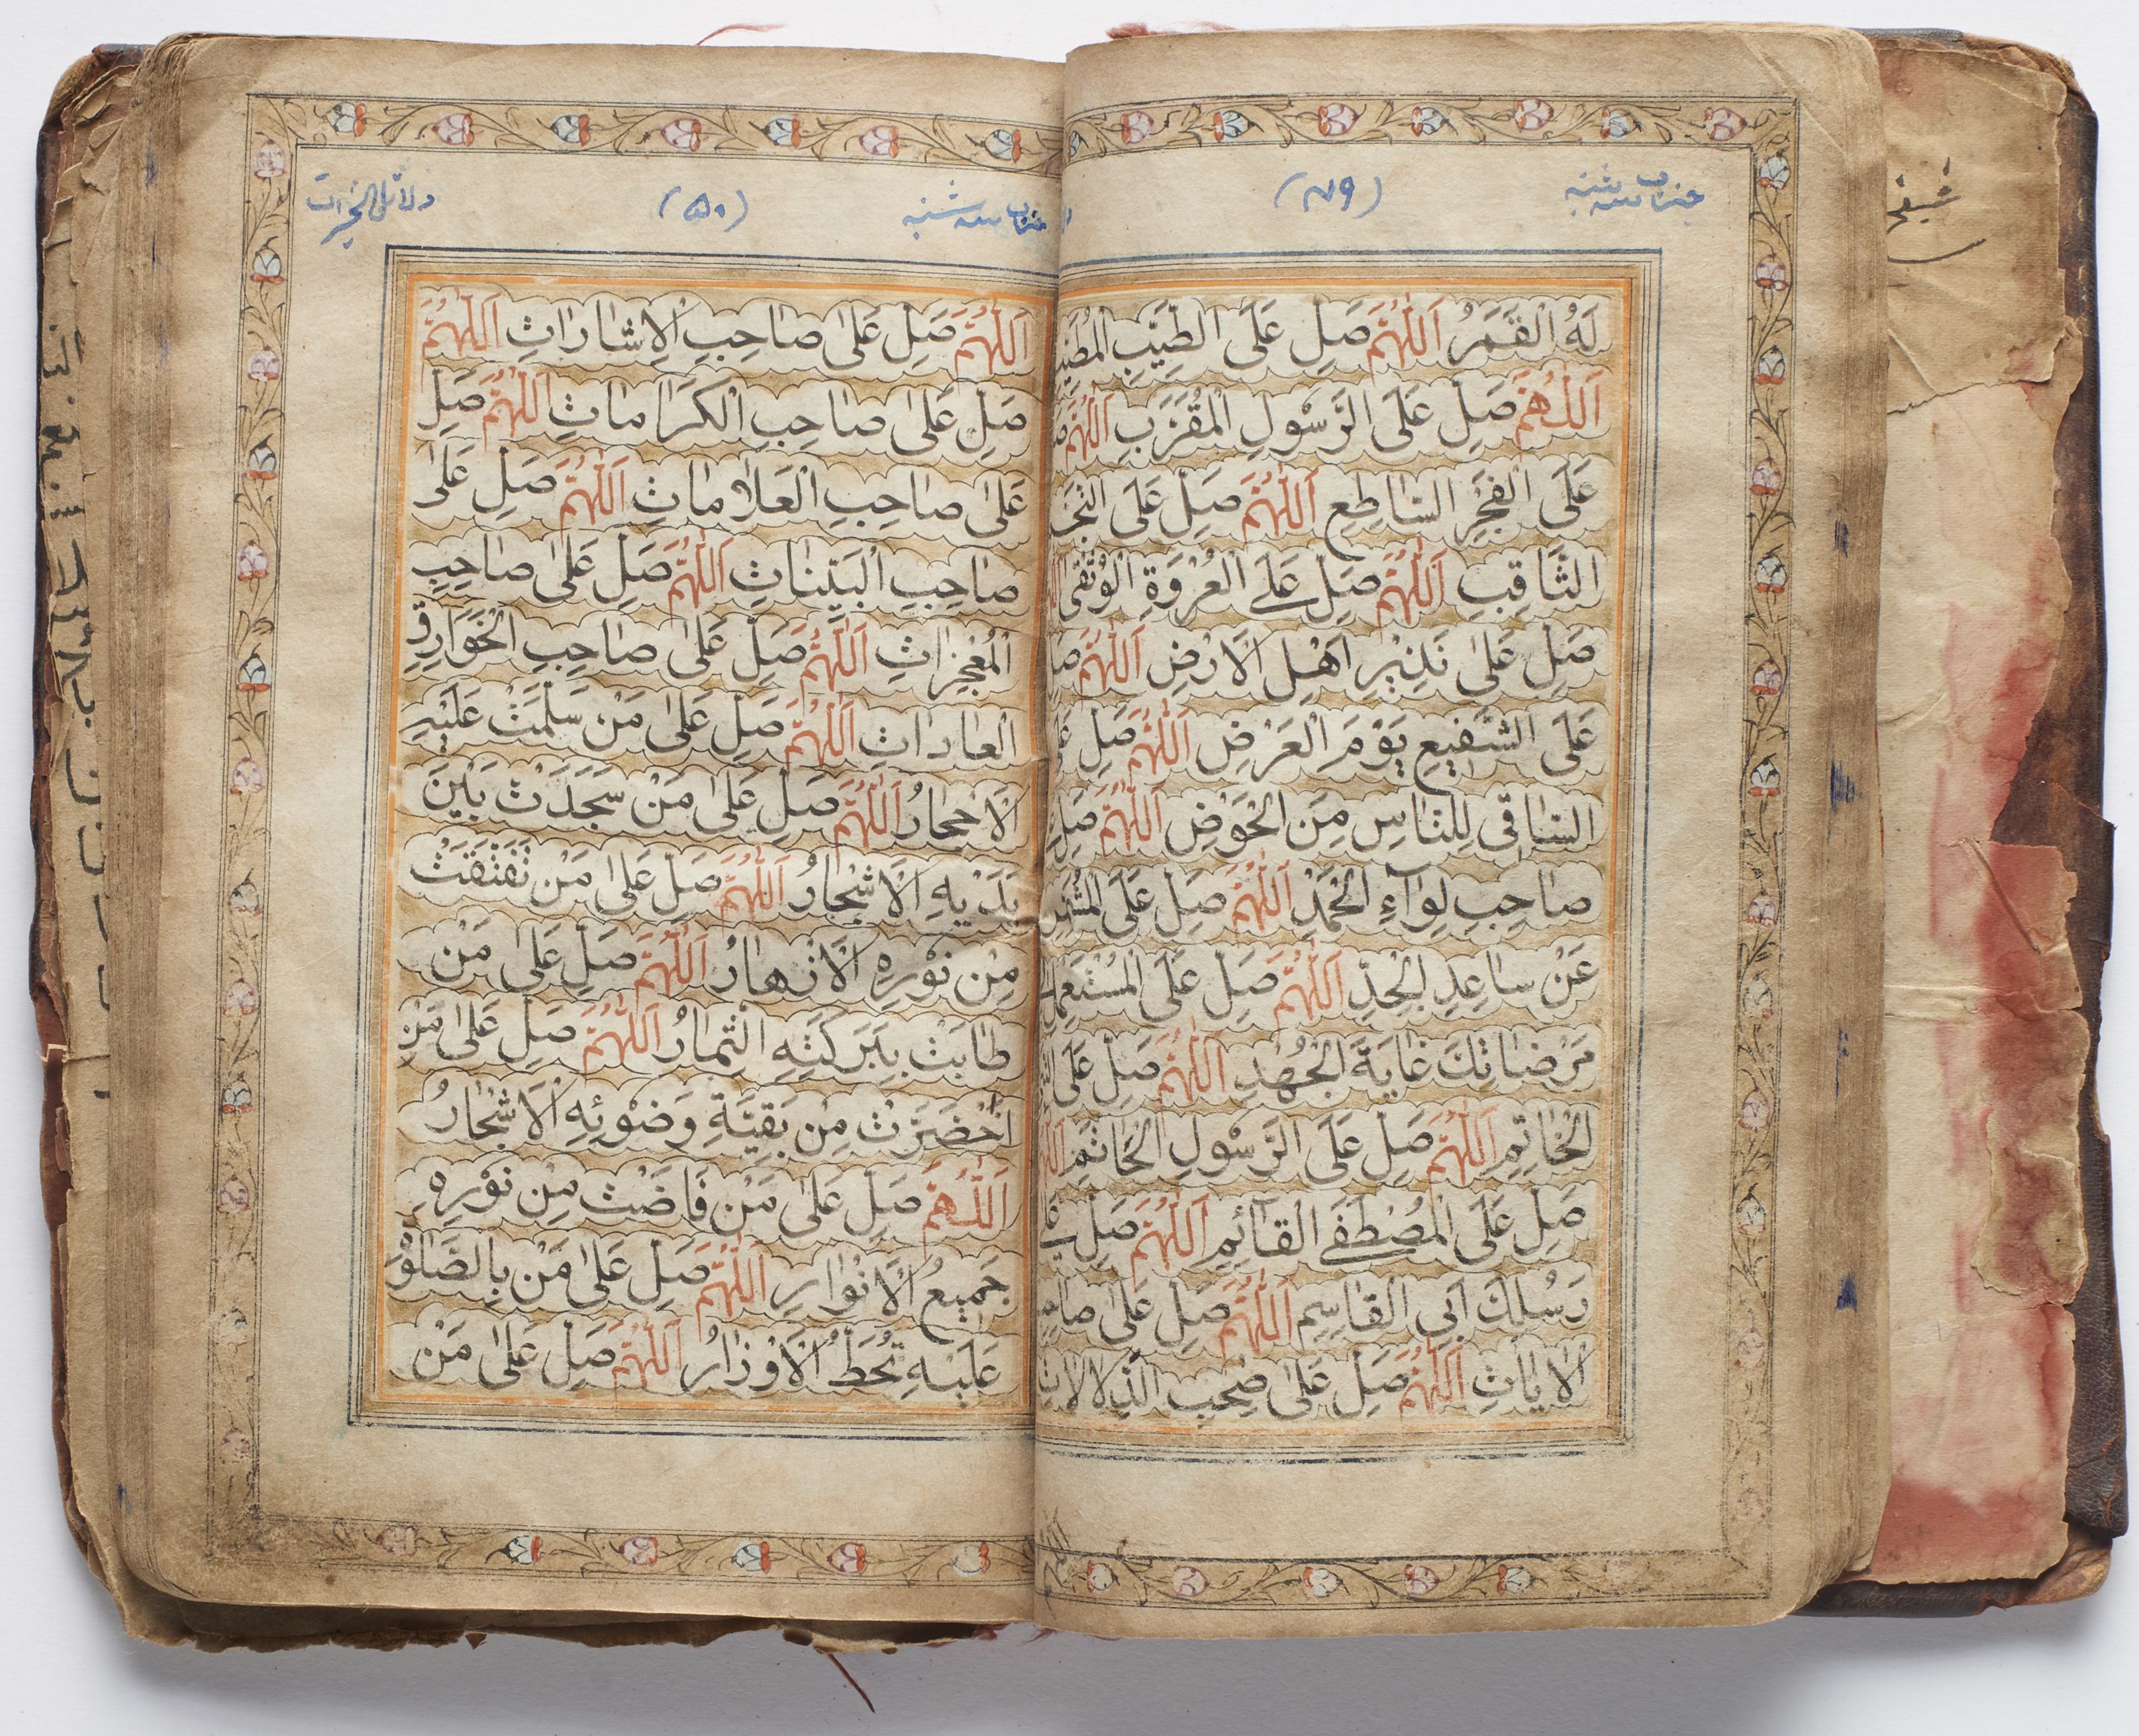 حزب سه شنبه
(۴۹)
لَهُ الْقَمَرُ اَللّٰهُمَّ صَلِّ عَلَى الطَّيِّبِ
اَللّٰهُمَّ صَلِّ عَلَى الرَّسُولِ الْمُقَرَّبِ اَللّٰهُمَّ
عَلَى الْفَجْرِ السَّاطِعِ اَللّٰهُمَّ صَلِّ عَلَى
الثَّاقِبِ اَللّٰهُمَّ صَلِّ عَلَى الْعُرْوَةِ الْوُثْقٰى
صَلِّ عَلٰى نَذِيْرِ اَهْلِ الْاَرْضِ اَللّٰهُمَّ
عَلَى الشَّفِيْعِ يَوْمَ الْعَرْضِ اَللّٰهُمَّ صَلِّ
السَّاقِى لِلنَّاسِ مِنَ الْحَوْضِ اَللّٰهُمَّ صَلِّ
صَاحِبِ لِوَآءِ الْحَمْدِ اَللّٰهُمَّ صَلِّ عَلَى
عَنْ سَاعِدِ الْجِدِّ اَللّٰهُمَّ صَلِّ عَلَى الْمُسْتَعْمِلِ
مَرْضَاتِكَ غَايَةَ الْجُهْدِ اَللّٰهُمَّ صَلِّ عَلَى
الْخَاتِمِ اَللّٰهُمَّ صَلِّ عَلَى الرَّسُوْلِ الْخَاتَمِ
صَلِّ عَلَى الْمُصْطَفٰى الْقَآئِمِ اَللّٰهُمَّ صَلِّ
رَسُلِكَ اَبِى الْقَاسِمِ اَللّٰهُمَّ صَلِّ عَلٰى
الْاٰيَاتِ اَللّٰهُمَّ صَلِّ عَلٰى صٰحِبِ الدَّلَالَاتِ
حزب سه شنبه
(۵۰)
دلائل الخيرات
اَللّٰهُمَّ صَلِّ عَلٰى صَاحِبِ الْاِشَارَاتِ اَللّٰهُمَّ
صَلِّ عَلٰى صَاحِبِ الْكَرَامَاتِ اَللّٰهُمَّ صَلِّ
عَلٰى صَاحِبِ الْعَلَامَاتِ اَللّٰهُمَّ صَلِّ عَلٰى
صَاحِبِ الْبَيِّنَاتِ اَللّٰهُمَّ صَلِّ عَلٰى صَاحِبِ
الْمُعْجِزَاتِ اَللّٰهُمَّ صَلِّ عَلٰى صَاحِبِ الْخَوَارِقِ
الْعَادَاتِ اَللّٰهُمَّ صَلِّ عَلٰى مَنْ سَلَّمَتْ عَلَيْهِ
الْاَحْجَارُ اَللّٰهُمَّ صَلِّ عَلٰى مَنْ سَجَدَتْ بَيْنَ
يَدَيْهِ الْاَشْجَارُ اَللّٰهُمَّ صَلِّ عَلٰى مَنْ تَفَتَّقَتْ
مِنْ نُوْرِهِ الْاَزْهَارُ اَللّٰهُمَّ صَلِّ عَلٰى مَنْ
طَابَتْ بِبَرَكَتِهِ الثِّمَارُ اَللّٰهُمَّ صَلِّ عَلٰى مَنْ
اخْضَرَّتْ مِنْ بَقِيَّةِ وَضُوْئِهِ الْاَشْجَارُ
اَللّٰهُمَّ صَلِّ عَلٰى مَنْ فَاضَتْ مِنْ نُوْرِهِ
جَمِيْعُ الْاَنْوَارِ اَللّٰهُمَّ صَلِّ عَلٰى مَنْ بِالصَّلٰوةِ
عَلَيْهِ تُحَطُّ الْاَوْزَارُ اَللّٰهُمَّ صَلِّ عَلٰى مَنْ